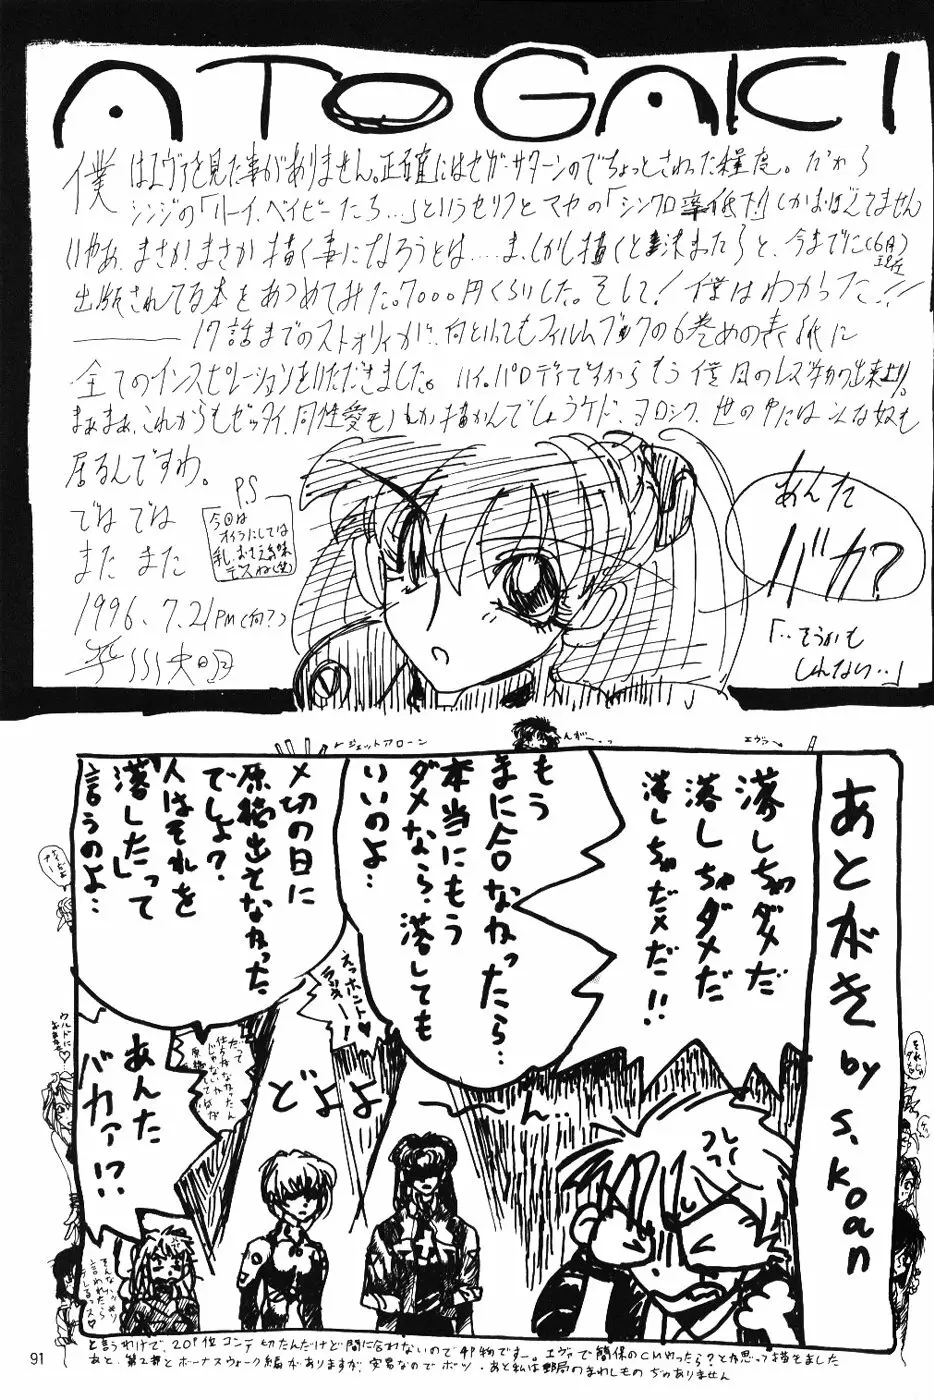 ATOGAKI
僕はエヴァを見た事がありません。正確にはセガ・サターンのでちょっとさわった程度。だから
シンジの「ハーイ、ベイビーたち…」というセリフとマヤの「シンクロ率低下!」しかおぼえてません
いやあ、まさか、まさか描く事になろうとは……ま、しかし描くと決まったらと、今までに(6月現在)
出版されてる本をあつめてみた。7000円くらいした。そして!僕はわかった!!
17話までのストォリィかに、何といってもフィルムブックの6巻めの表紙に
全てのインスピレーションをいただきました。ハイ。パロディですからもう僕風のレズ物の出来上り。
まぁまぁ、これからもゼッタイ、同性愛モノしか描かんでしょうケド、ヨロシク、世の中にはこんな奴も
居るんですわ。
ではでは
また また
1996. 7. 21 PM(何?)
P.S
今回は
オイラにしては
乳、おさえ気味
デスね(笑)
あんた
バカ?
「‥そうかも
しれない‥」
ジェットアローン
エヴァ
あとがき by s.koan
落しちゃダメだ
落しちゃダメだ
落しちゃだメだ!!
もう
まに合わなかったら…
本当にもう
ダメなら、落しても
いいのよ…
〆切の日に
原稿出せなかった
でしょ?
人はそれを
「落した」って
言うのよ…
えっホント♥
ラッキー!
どよよーん‥
あんた
バカァ!?
と言うわけで、20P位コンテ切たんだけど間に合わないので4P物ですー。エヴァで簡保のCMやったら?とか思って描きました
あと、第2部とボーナスウォーク編がありますが、安易なのでボツ・あと私は郵局のまわしものぢゃありません
91